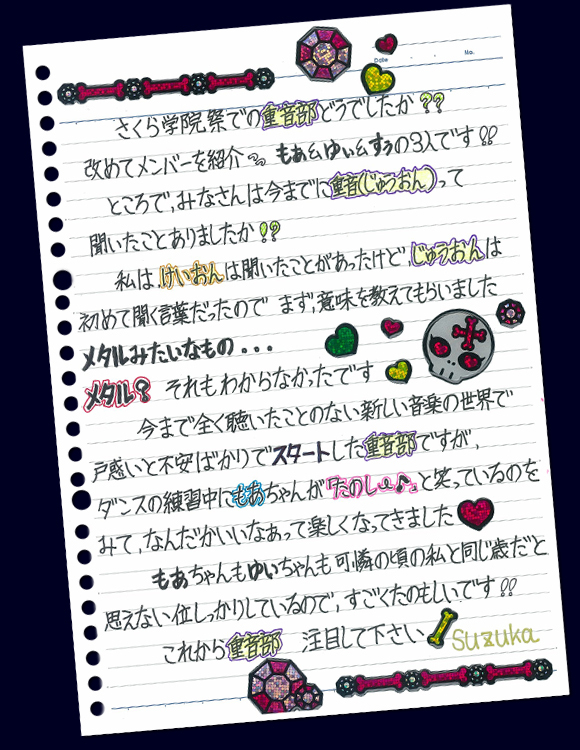 Date . . No.
さくら学院祭での重音部どうでしたか??
改めてメンバーを紹介〜 もぁ&ゆぃ&すぅの3人です!!
ところで、みなさんは今までに重音(じゅうおん)って
聞いたことありましたか!?
私は、けいおんは聞いたことがあったけど、じゅうおんは
初めて聞く言葉だったので まず、意味を教えてもらいました
メタルみたいなもの...
メタル? それもわからなかったです
今まで全く聴いたことのない新しい音楽の世界で
戸惑いと不安ばかりでスタートした重音部ですが、
ダンスの練習中にもあちゃんが「たのしーい♪」と笑っているのを
みて、なんだかいいなあって楽しくなってきました
もあちゃんもゆいちゃんも可憐の頃の私と同じ歳だと
思えない位しっかりしているので、すごくたのもしいです!!
これから重音部 注目して下さい
Suzuka